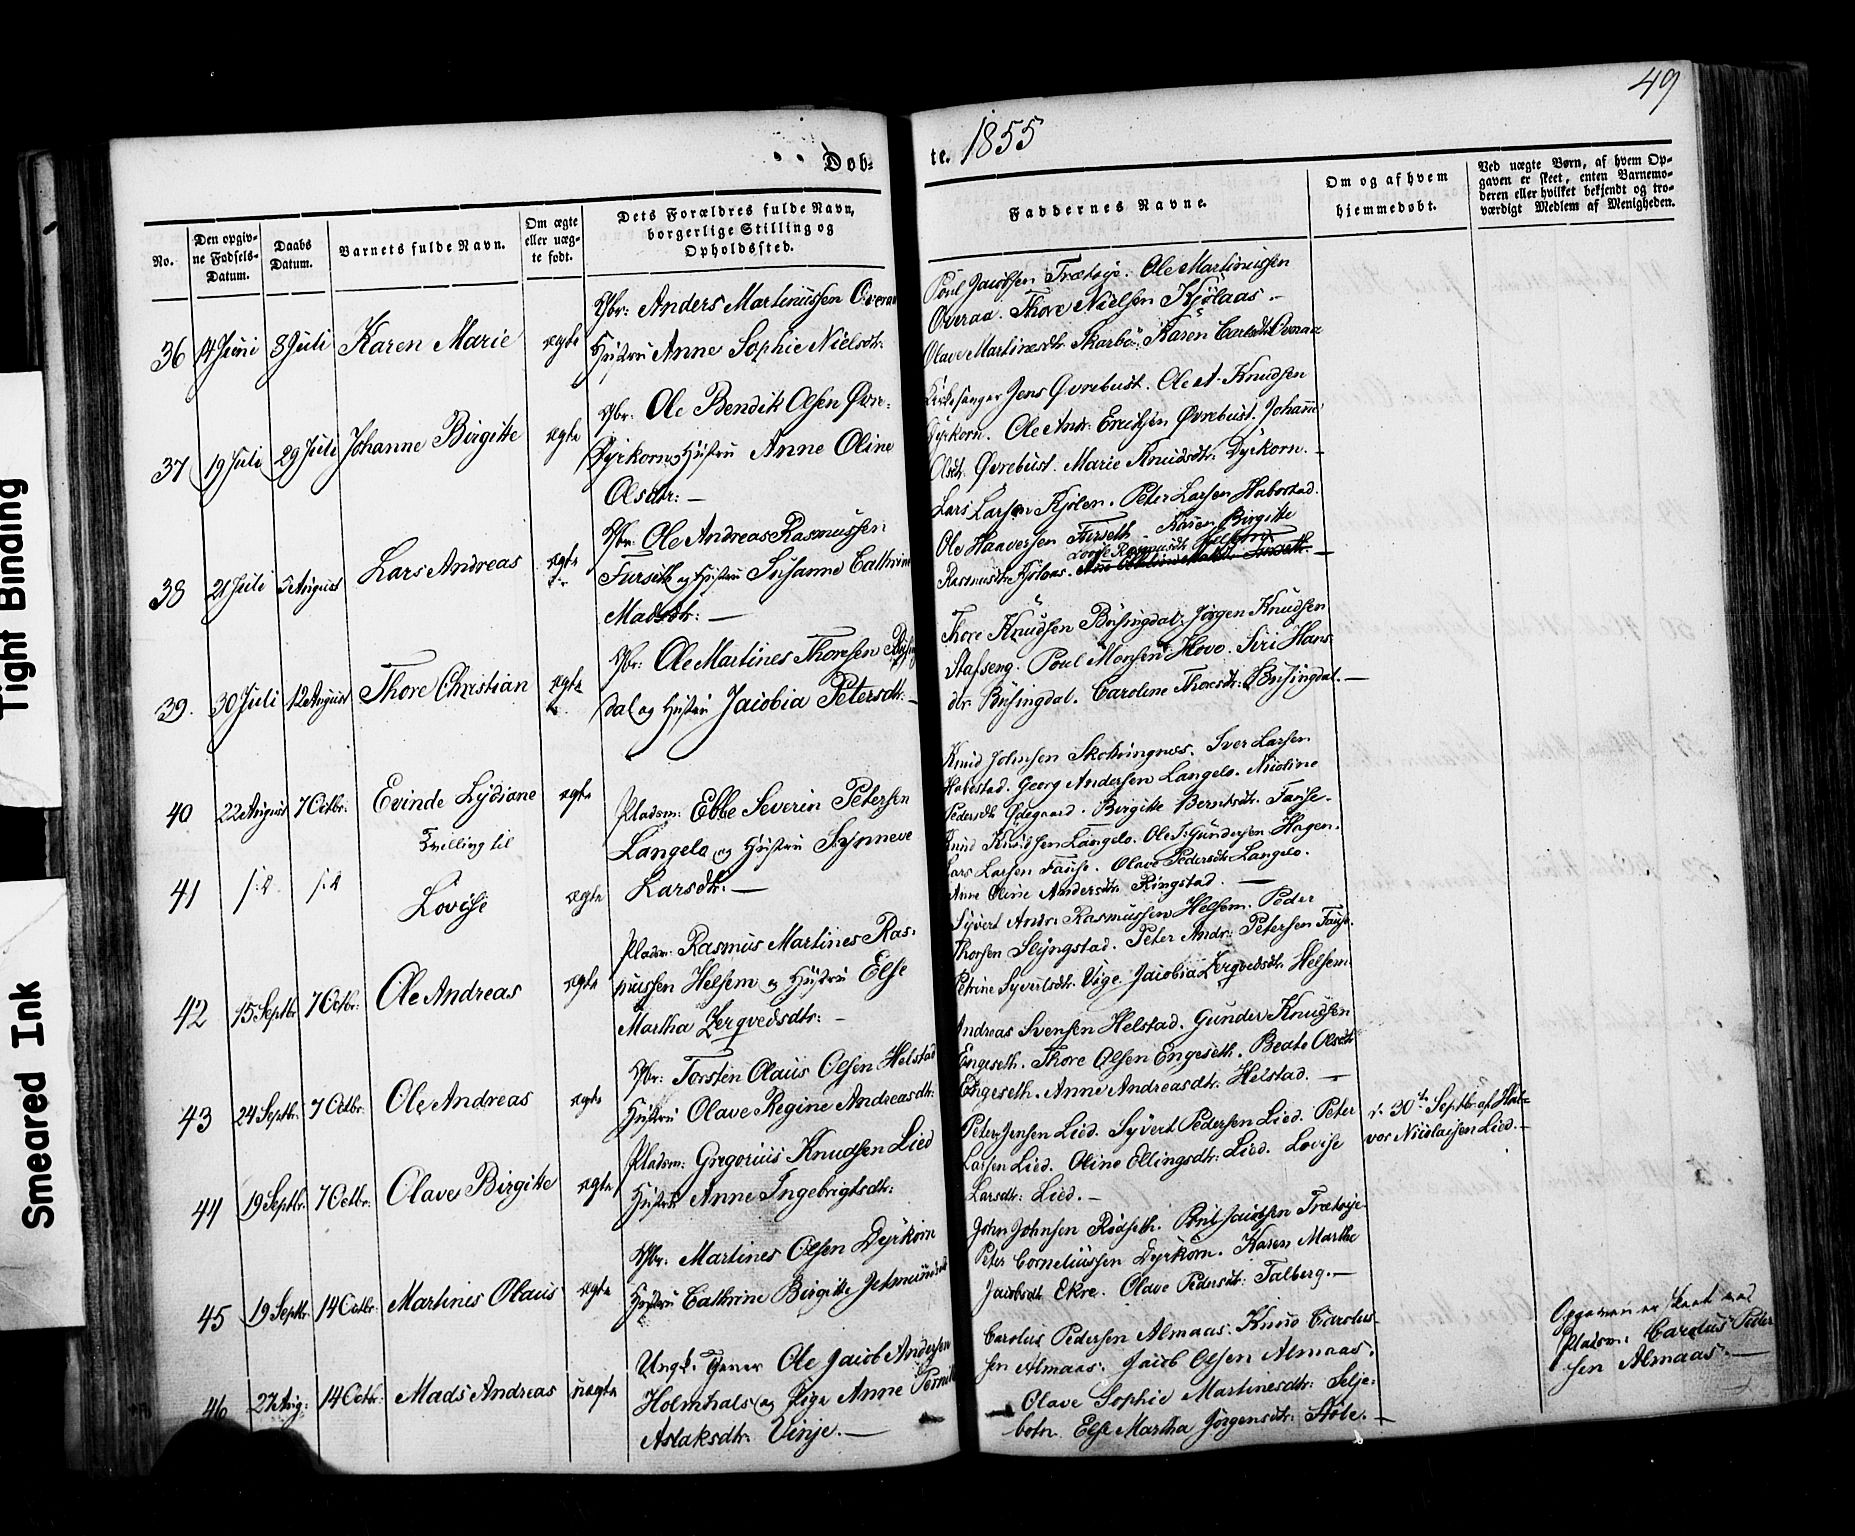 49
Døb-
te. 1855
No.
Den opgiv-
ne Fødsels-
Datum.
Daabs
Datum.
Barnets fulde Navn.
Om ægte
eller uæg-
te født.
Dets Forældres fulde Navn,
borgerlige Stilling og
Opholdssted.
Faddernes Navne.
Om og af hvem
hjemmedøbt.
Ved uægte Børn, af hvem Op-
gaven er skeet, enten Barnemo-
deren eller hvilket bekjendt og tro-
værdigt Medlem af Menigheden.
36 14 Juni 8 Juli Karen Marie ægte
Gbr: Anders Martinussen Overaa
Hustru Anne Sophie Nielsdtr.
Poul Jacobsen Trætøje. Ole Martinussen
Overaa. Thore Nielsen Kjølaas. -
Olave Martinesdtr. Skarbø. Karen Carlsdtr Overaa
37 19 Juli 29 Juli Johanne Birgitte ægte
Gbr: Ole Bendik Olsen Øvre-
Dyrkorn og Hustru Anne Oline
Olsdtr: -
Kirkesanger Jens Øvrebust. Ole A. Knudsen
Dyrkorn. Ole Andr. Ericksen Øvrebust. Johanne
Olsdtr. Øvrebust. Marie Knudsdtr. Dyrkorn. -
38 21 Juli 5 August Lars Andreas ægte
Gbr: Ole Andreas Rasmussen
Furseth og Hustru Susanne Cathrine
Madsdtr: -
Lars Larsen Kjølen. Peter Larsen Habostad.
Ole Haaversen Furseth. Karen Birgitte
Rasmusdtr Kjølaas.
39. 30 Juli 12 August Thore Christian ægte
Gbr: Ole Martines Thoresen Busing
dal og Hustru Jacobia Petersdtr. -
Thore Knudsen Busingdal. Jørgen Knudsen
Stafseng. Poul Monsen Hovo. Siri Hans
dtr. Busingdal. Caroline Thoresdtr. Busingdal. -
40 22 August 7 Octbr: Evinde Lydiane ægte
Tvelling til
Pladsm: Ebbe Severin Petersen
Langelo og Hustru Synneve
Larsdtr. -
Knud Johnsen Skotringnes. Iver Larsen
Habostad. Georg Andersen Langelo. Nicoline
Pedersdtr Ødegaard. Birgitte Berntsdtr. Fause.
41 s: d. s: d Lovise ægte
Knud Knudsen Langelo. Ole I. Gundersen Hagen.
Lars Larsen Fause. Olave Pedersdtr Langelo.
Anne Oline Andersdtr Ringstad. -
42 15 Septbr 7 Octbr: Ole Andreas ægte
Pladsm: Rasmus Martines Ras-
mussen Helsem og Hustru Else
Martha Zergvedsdtr: -
Syvert Andr: Rasmussen Helsem. Peder
Thorsen Slyngstad. Peter Andr: Petersen Fause.
Petrine Syvertsdtr. Vige. Jacobia Zergvedsdtr. Helsem.
43 24 Septbr. 7 Octbr. Ole Andreas ægte
Gbr: Torsten Olaus Olsen Helstad
Hustru Olave Regine Andreasdtr.
Andreas Svensen Helstad. Gunder Knudsen
Engeseth. Thore Olsen Engeseth. Beate Olsdtr
Engeseth. Anne Andreasdtr. Helstad. -
44 19 Septbr. 7 Octbr. Olave Birgitte ægte
Pladsm: Gregorius Knudsen Lied
Hustru Anne Ingebrigtsdtr:
Peter Jensen Lied. Syvert Pedersen Lied. Peter
Larsen Lied. Oline Ellingsdtr: Lied. Lovise
Larsdtr: Lied. -
d. 30te Septbr. af Hal-
vor Nicolaisen Lied. -
45 19 Septbr 14 Octbr. Martines Olaus ægte
Gbr: Martines Olsen Dyrkorn
Hustru Cathrine Birgitte Jetmundsdtr
John Johnsen Rødseth. Poul Jacobsen Trætøje
Peter Corneliussen Dyrkorn. Karen Marthe
Jacobsdtr Ekre. Olave Pedersdtr: Talberg. -
46 27 Aug: 14 Octbr: Mads Andreas uægte
Ungk. Tjener Ole Jacob Andersen
Holmhals og Pige Anne Pernille
Aslaksdtr. Vinje. -
Carolus Pedersen Almaas. Knud Carolus-
sen Almaas. Jacob Olsen Almaas.
Olave Sophie Martinesdtr: Selje-
botn. Else Martha Jørgensdtr: Støle. -
Opgaven er skeet ved
Pladsm: Carolus Peder
sen Almaas. -
Tight Binding
Smeared Ink